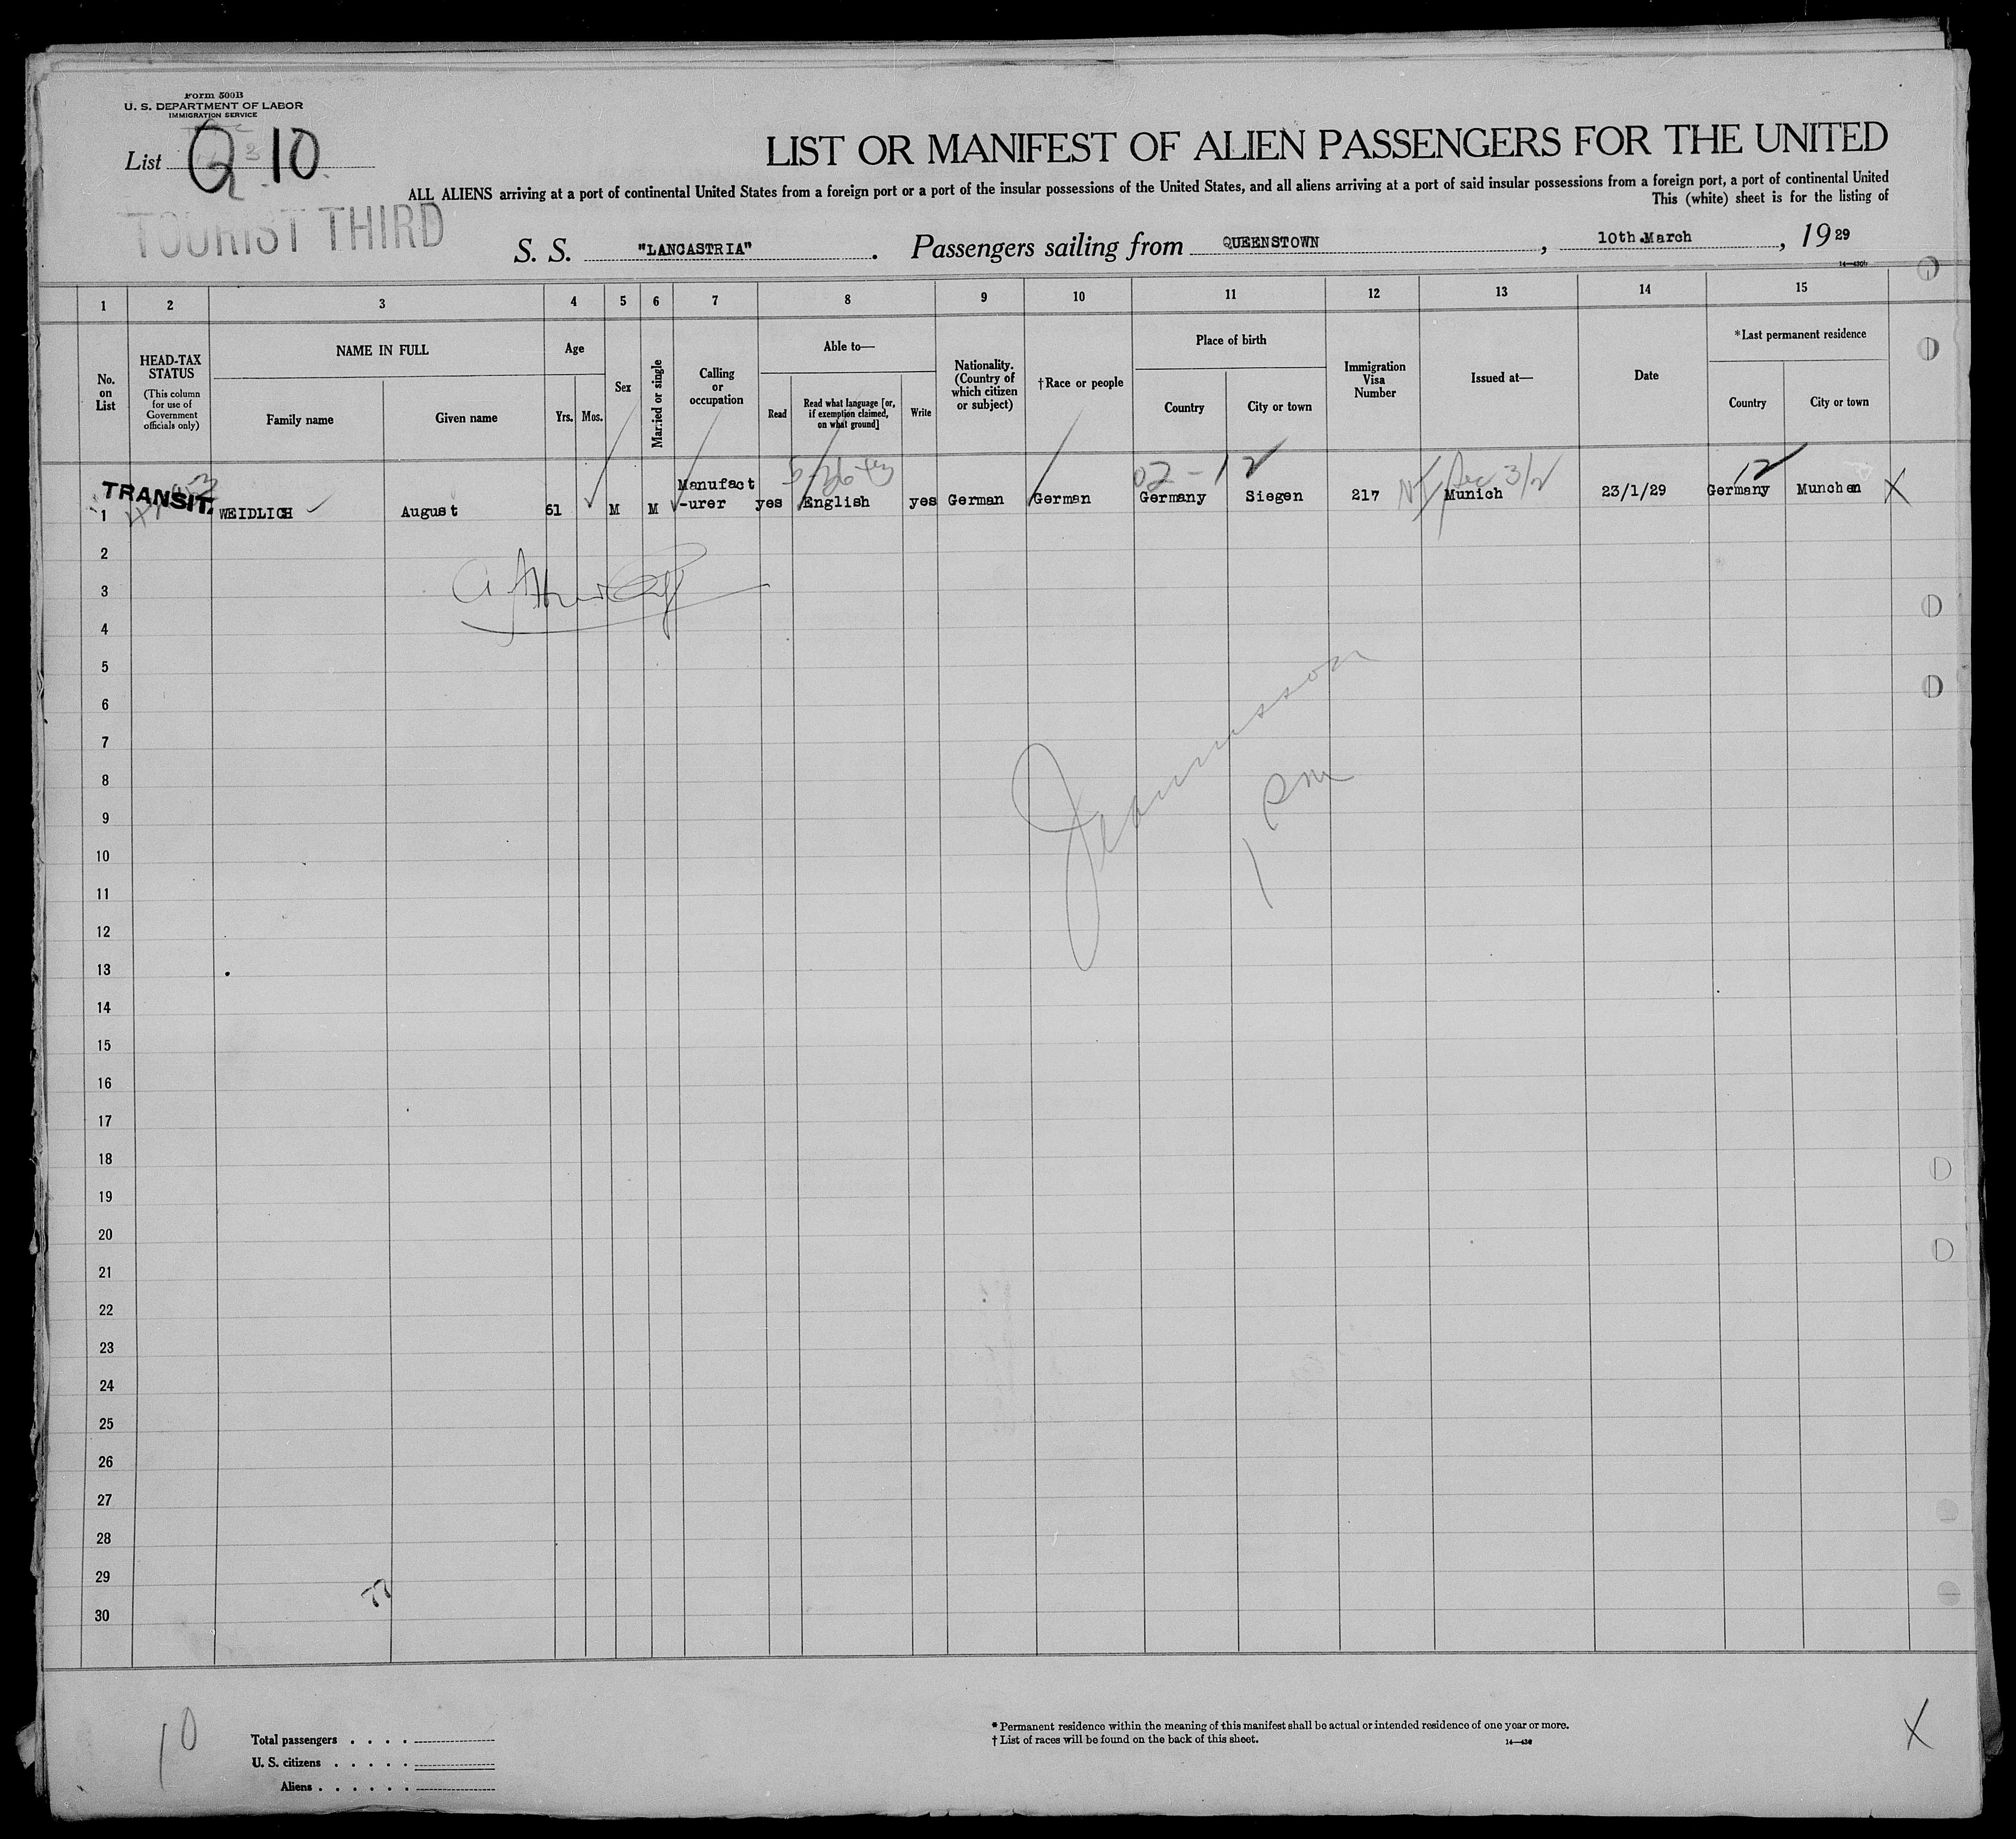 Form 500B
U. S. DEPARTMENT OF LABOR
IMMIGRATION SERVICE
List Q 10
TOURIST THIRD
LIST OR MANIFEST OF ALIEN PASSENGERS FOR THE UNITED
ALL ALIENS arriving at a port of continental United States from a foreign port or a port of the insular possessions of the United States, and all aliens arriving at a port of said insular possessions from a foreign port, a port of continental United
This (white) sheet is for the listing of
S. S. "LANCASTRIA". Passengers sailing from QUEENSTOWN, 10th.March, 19 29
1 2 3 4 5 6 7 8 9 10 11 12 13 14 15
No. on List
HEAD-TAX STATUS
(This column for use of Government officials only)
NAME IN FULL
Family name Given name
Age
Yrs. Mos.
Sex
Married or single
Calling or occupation
Able to—
Read
Read what language [or, if exemption claimed, on what ground]
Write
Nationality. (Country of which citizen or subject)
†Race or people
Place of birth
Country City or town
Immigration Visa Number
Issued at—
Date
*Last permanent residence
Country City or town
02-12 12
TRANSIT.
1 WEIDLICH August 61 M M Manufact-urer yes English yes German German Germany Siegen 217 Munich 23/1/29 Germany Munchen X
2
3
4
5
6
7
8
9
10
11
12
13
14
15
16
17
18
19
20
21
22
23
24
25
26
27
28
29
30
1 pm
10
Total passengers . . . .
U. S. citizens . . . . .
Aliens . . . . . .
* Permanent residence within the meaning of this manifest shall be actual or intended residence of one year or more.
† List of races will be found on the back of this sheet.
X